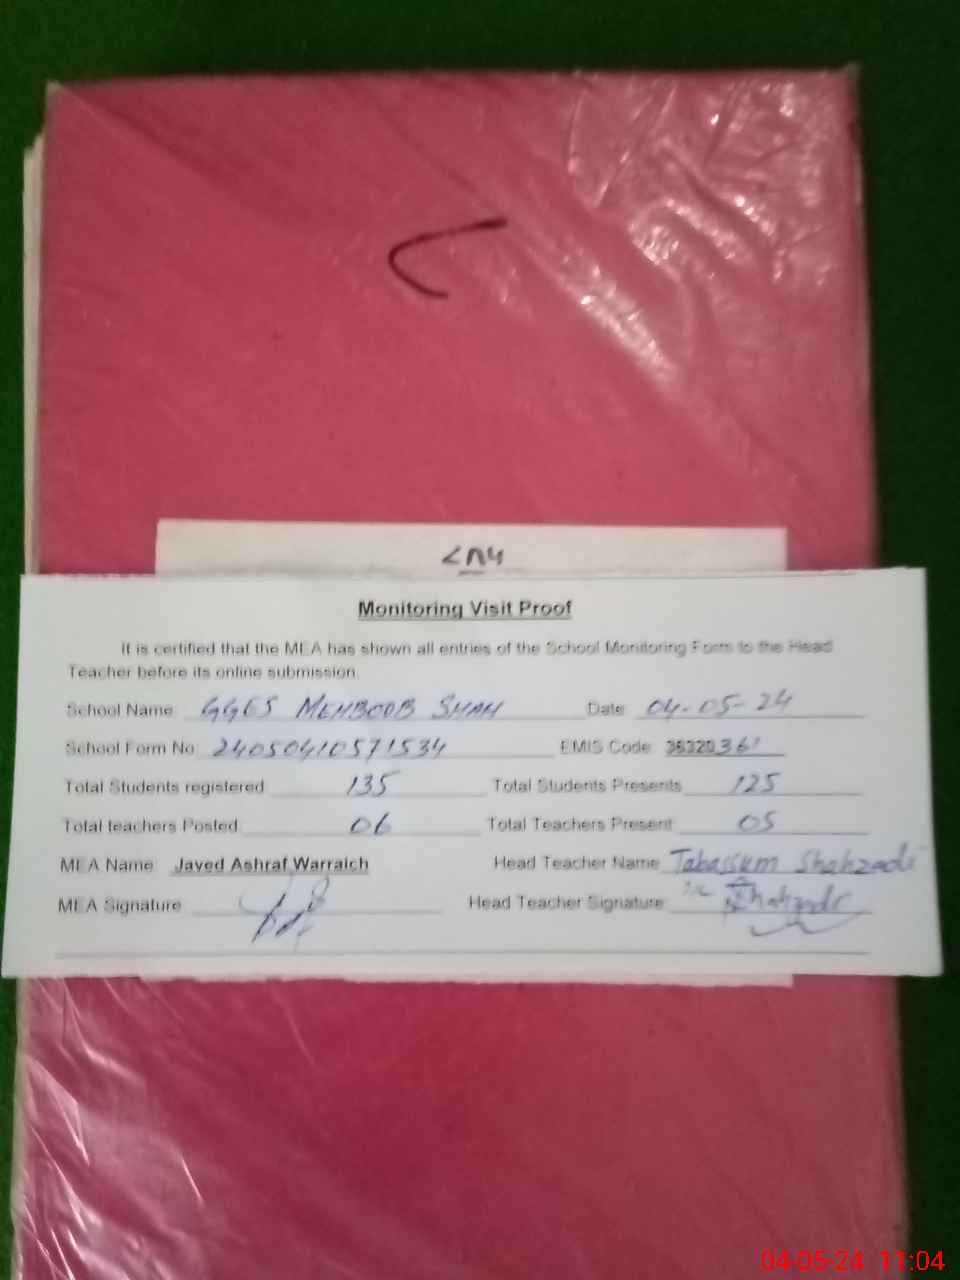 Monitoring Visit Proof
It is certified that the MEA has shown all entries of the School Monitoring Form to the Head
Teacher before its online submission.
School Name: GGES MEHBOOB SHAH Date: 04-05-24
School Form No. 24050410571534 EMIS Code: 36320361
Total Students registered 135 Total Students Presents 125
Total teachers Posted 06 Total Teachers Present 05
MEA Name: Javed Ashraf Warraich Head Teacher Name Tabassum Shahzadi
MEA Signature Head Teacher Signature: Shahzadi
04-05-24 11:04